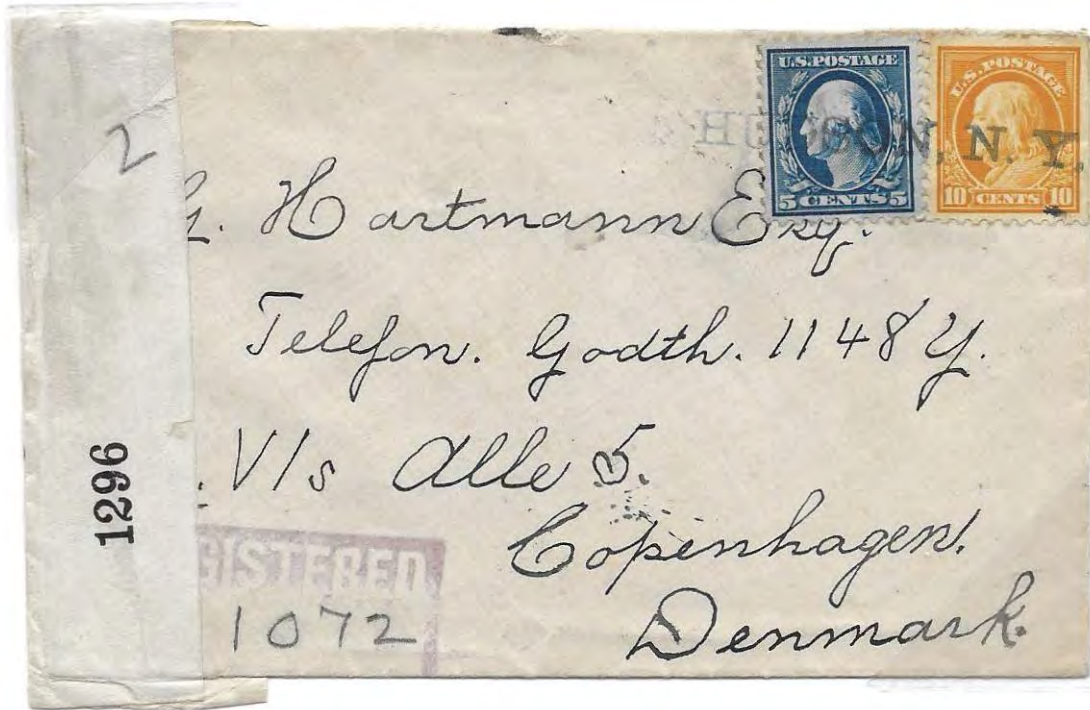 U.S. POSTAGE
5 CENTS 5
U.S. POSTAGE
10 CENTS 10
HUDSON, N. Y.
2
G. Hartmann Esq.
Telefon. Godth. 1148 Y.
. V/s Alle 5.
Copenhagen.
Denmark.
1296
GISTERED
1072